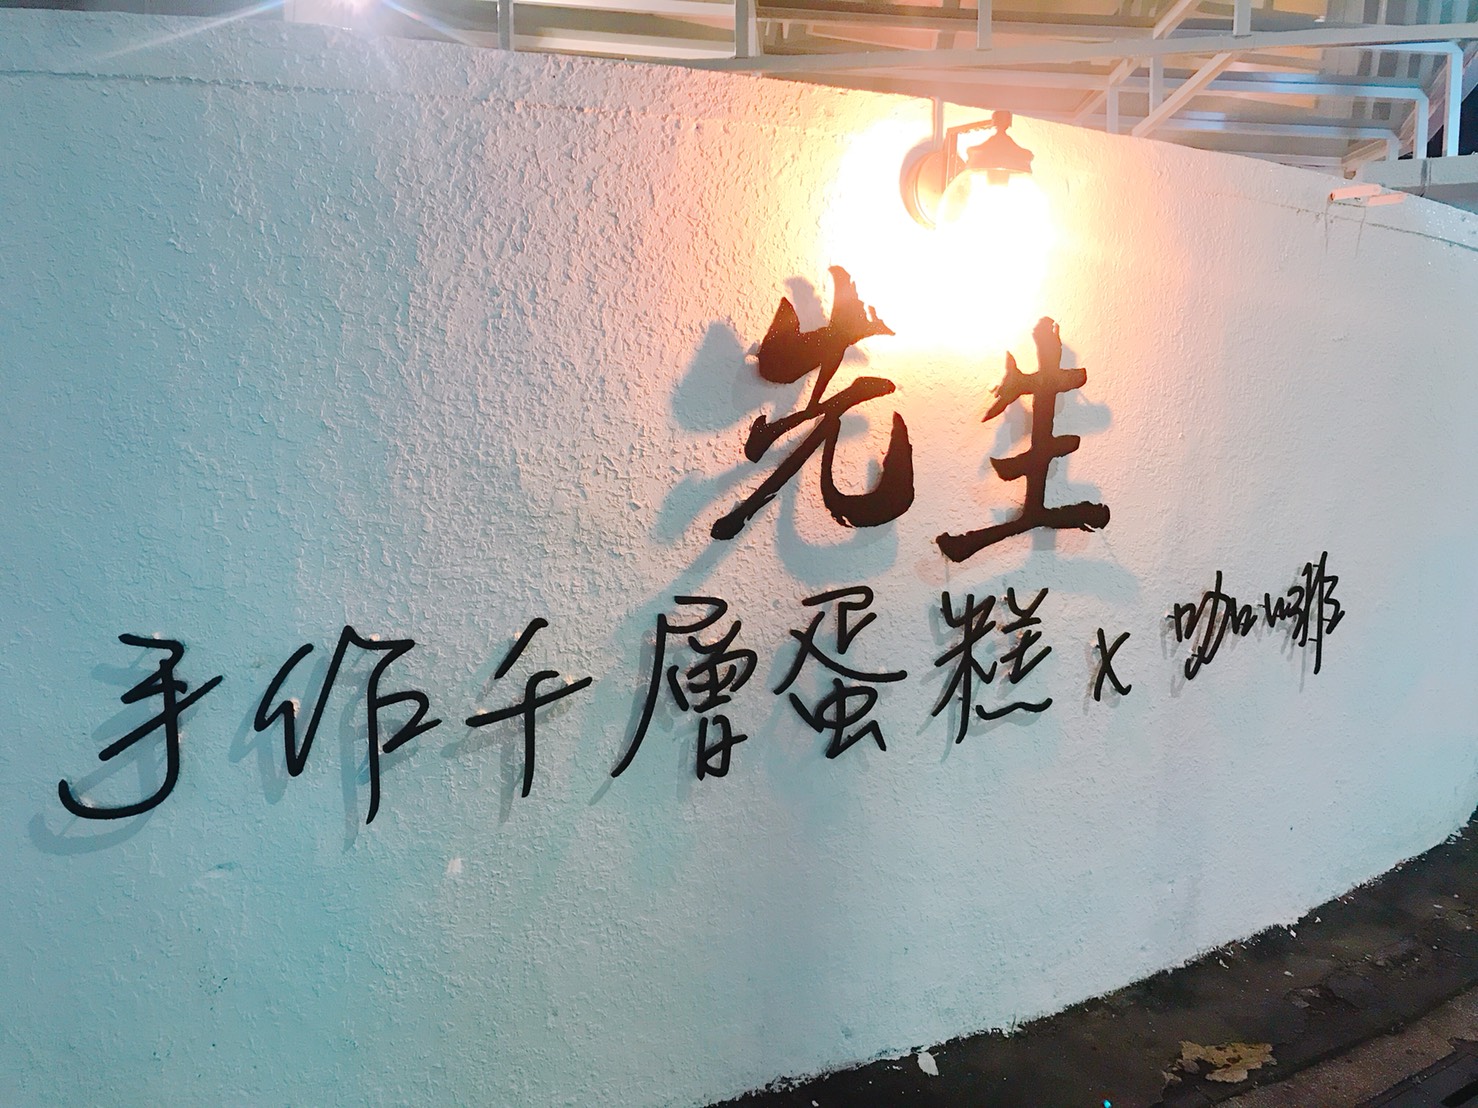 先生
手作千層蛋糕 x 咖啡